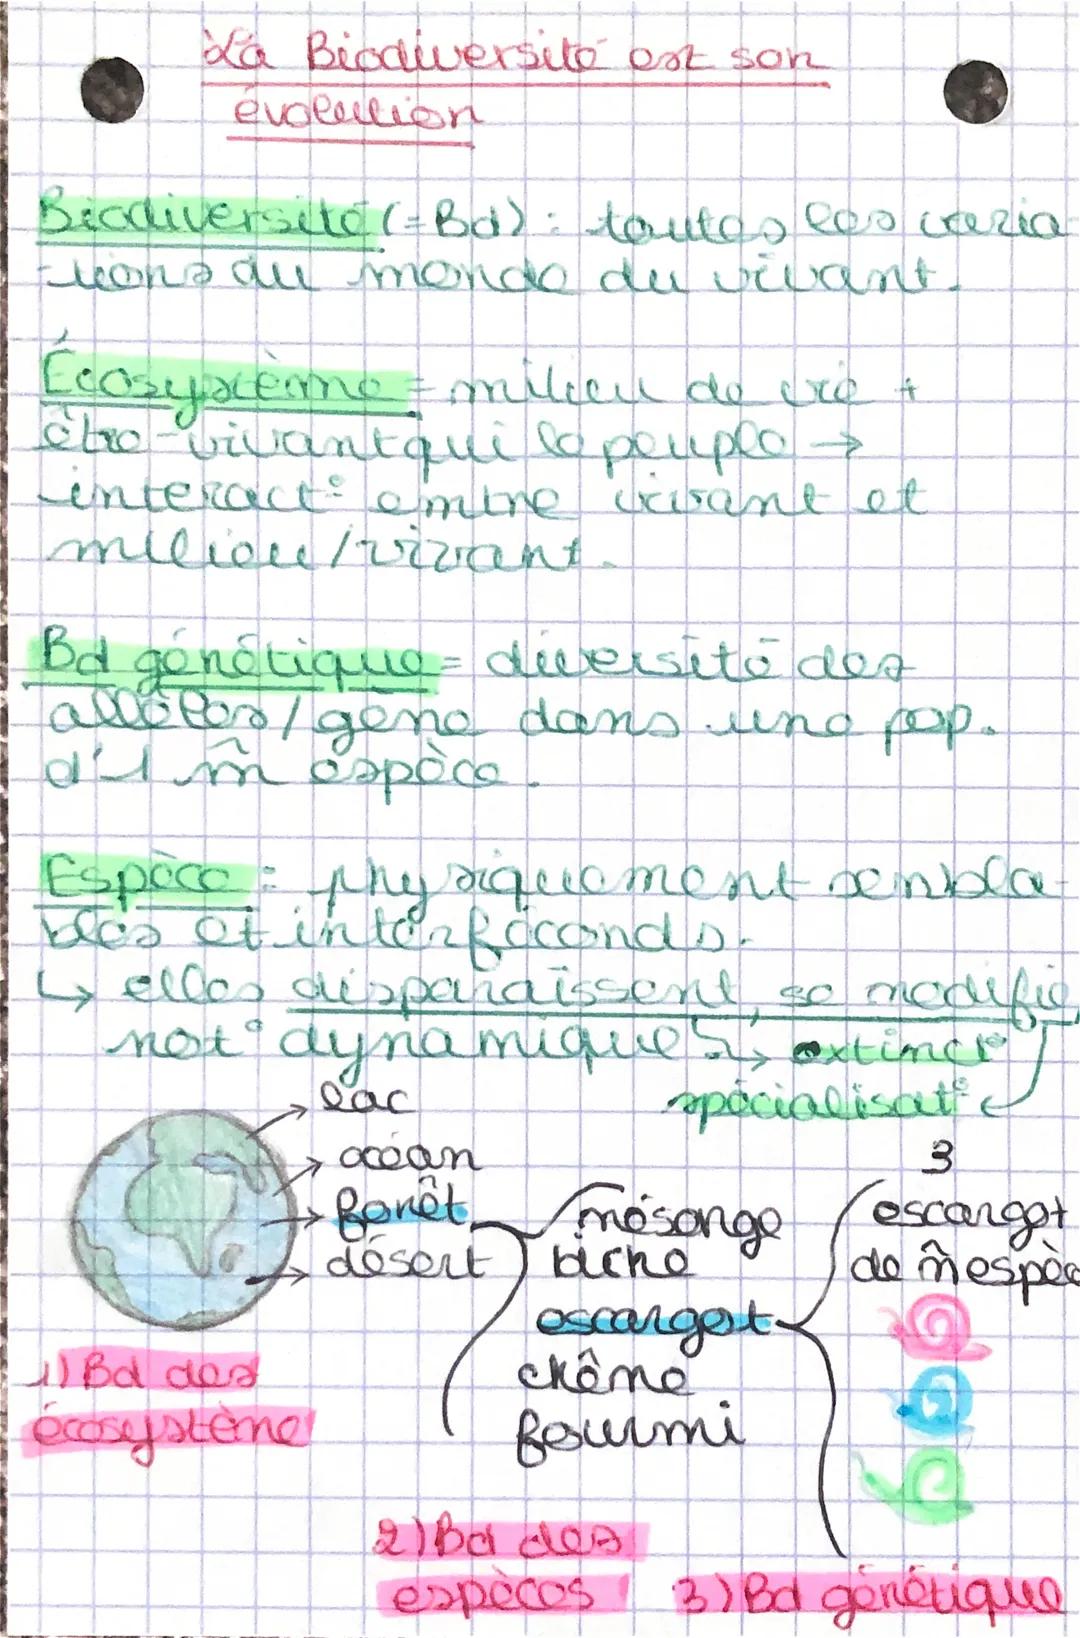 La Biodiversité est son
évolution
Biodiversité (=Bd) : toutes les varia-
-tions du monde du vivant.
Écosystème = milieu de vie +
être-vivant qui le peuple →
interact° entre vivant et
milieu/vivant.
Bd génétique = diversité des
allèles/gène dans une pop.
d'1 m̂ espèce.
Espèce : physiquement sembla-
bles et interféconds.
↳ elles disparaissent, se modifie,
not° dynamique ↳ extinct°
spécialisat°
lac
océan
forêt
désert
mésange
biche
escargot
chêne
fourmi
3
escargot
de m̂ espèc
1) Bd des
écosystème
2) Bd des
espèces
3) Bd génétique